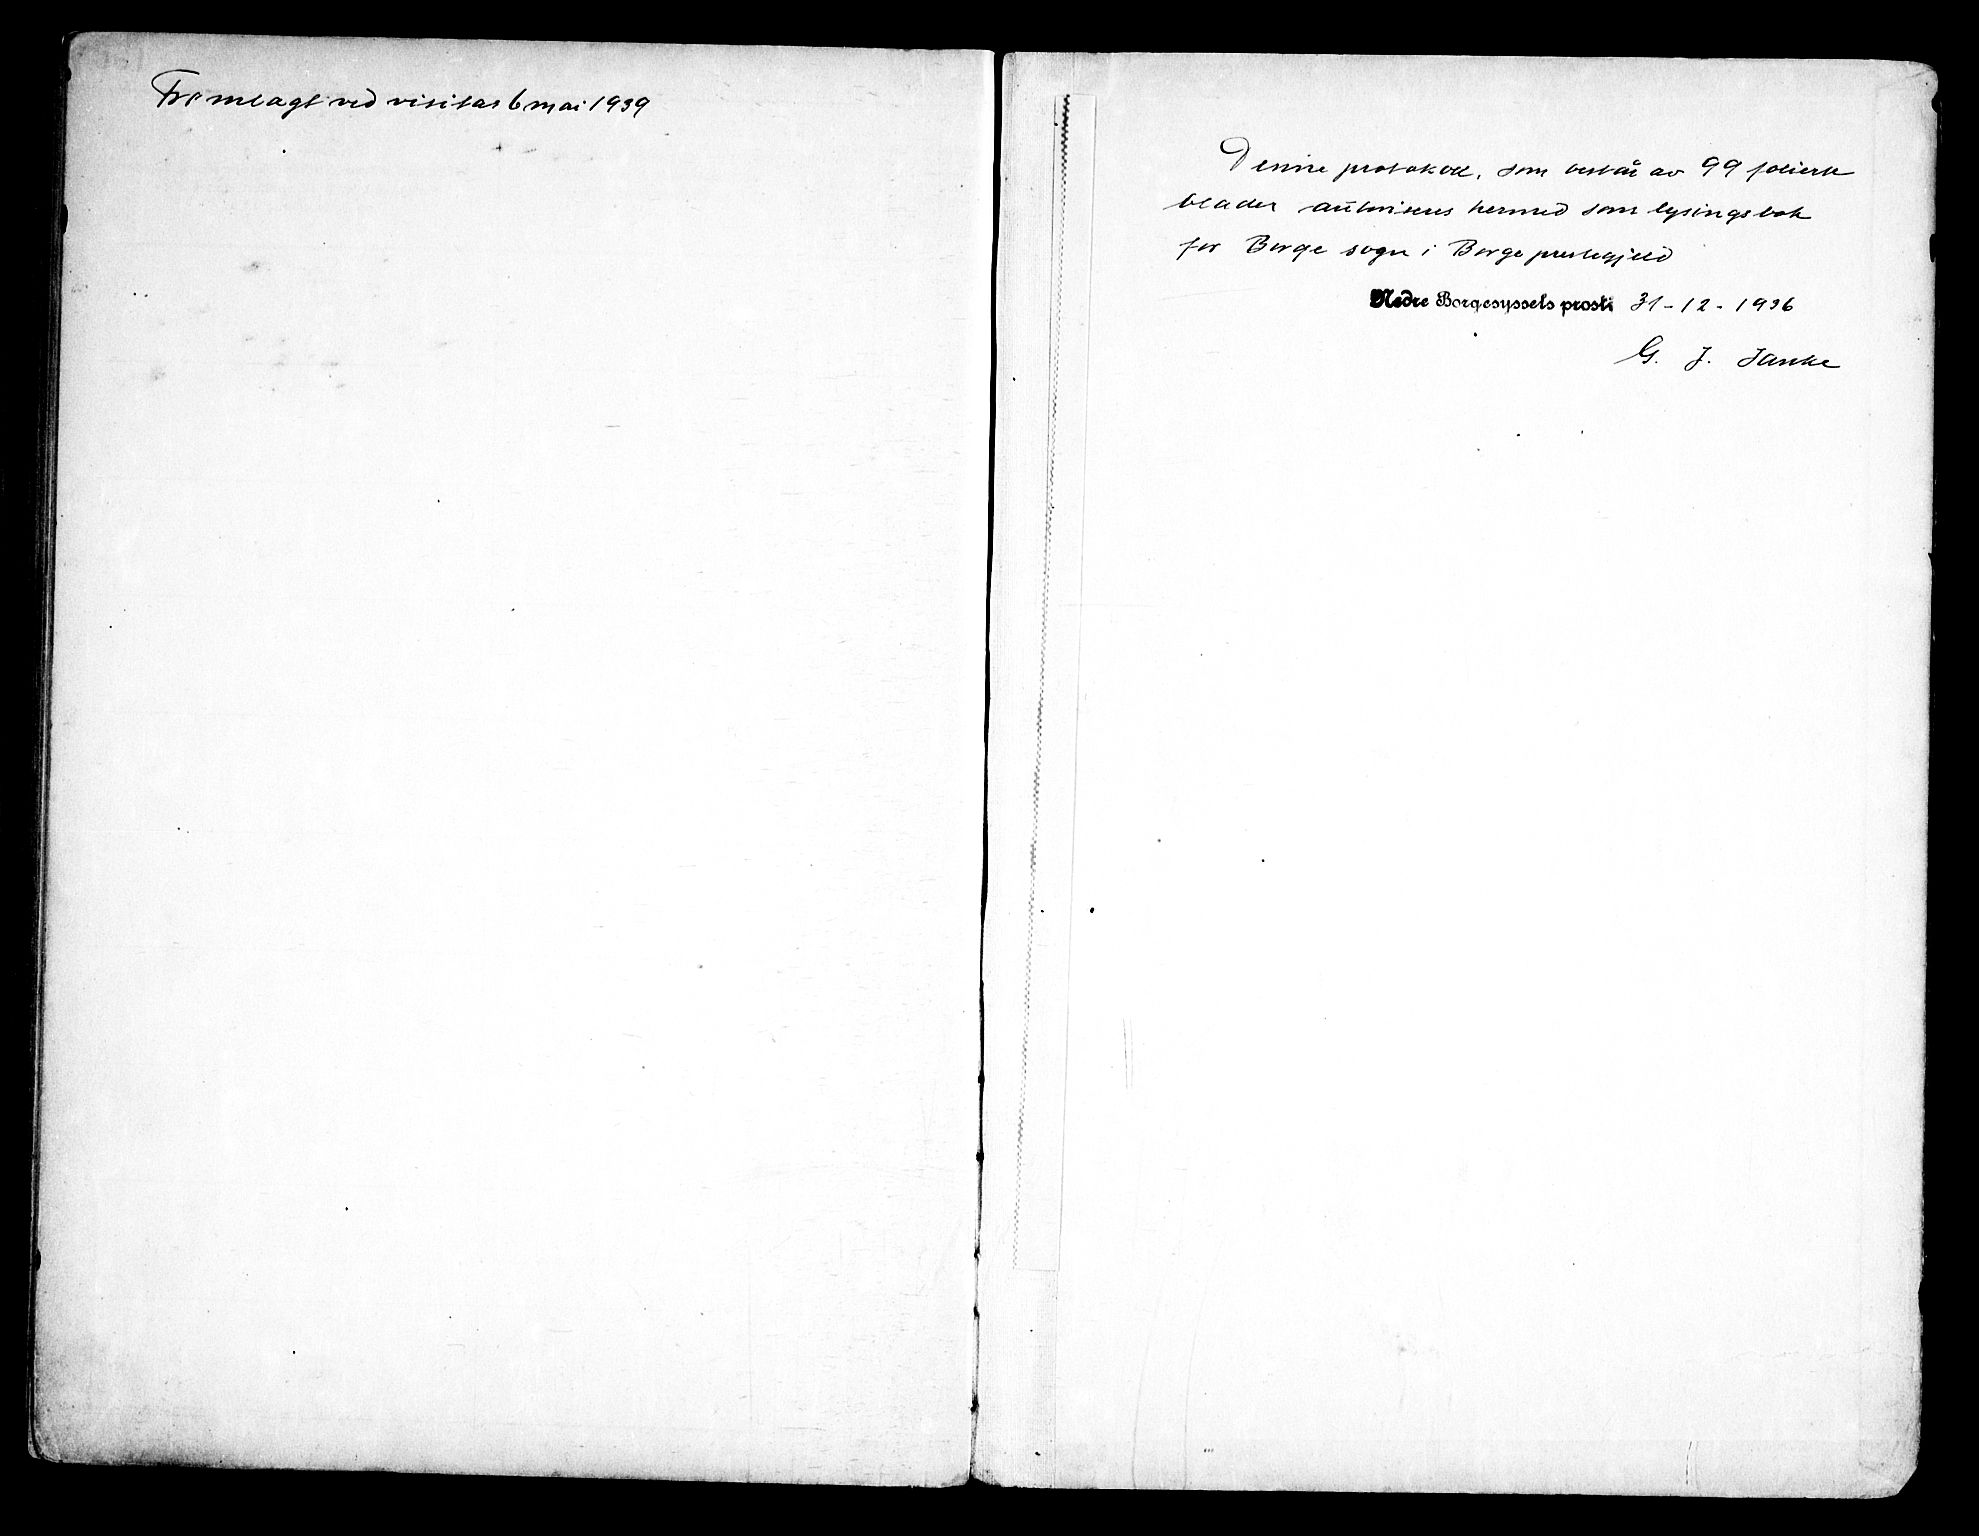 Fremlagt ved visitas 6 mai 1939
Denne protokoll, som består av 99 folierte
blader autoriseres hermed som lysingsbok
for Borge sogn i Borge prestegjeld
Nedre Borgesyssels prosti 31-12-1936
G. J. Janke